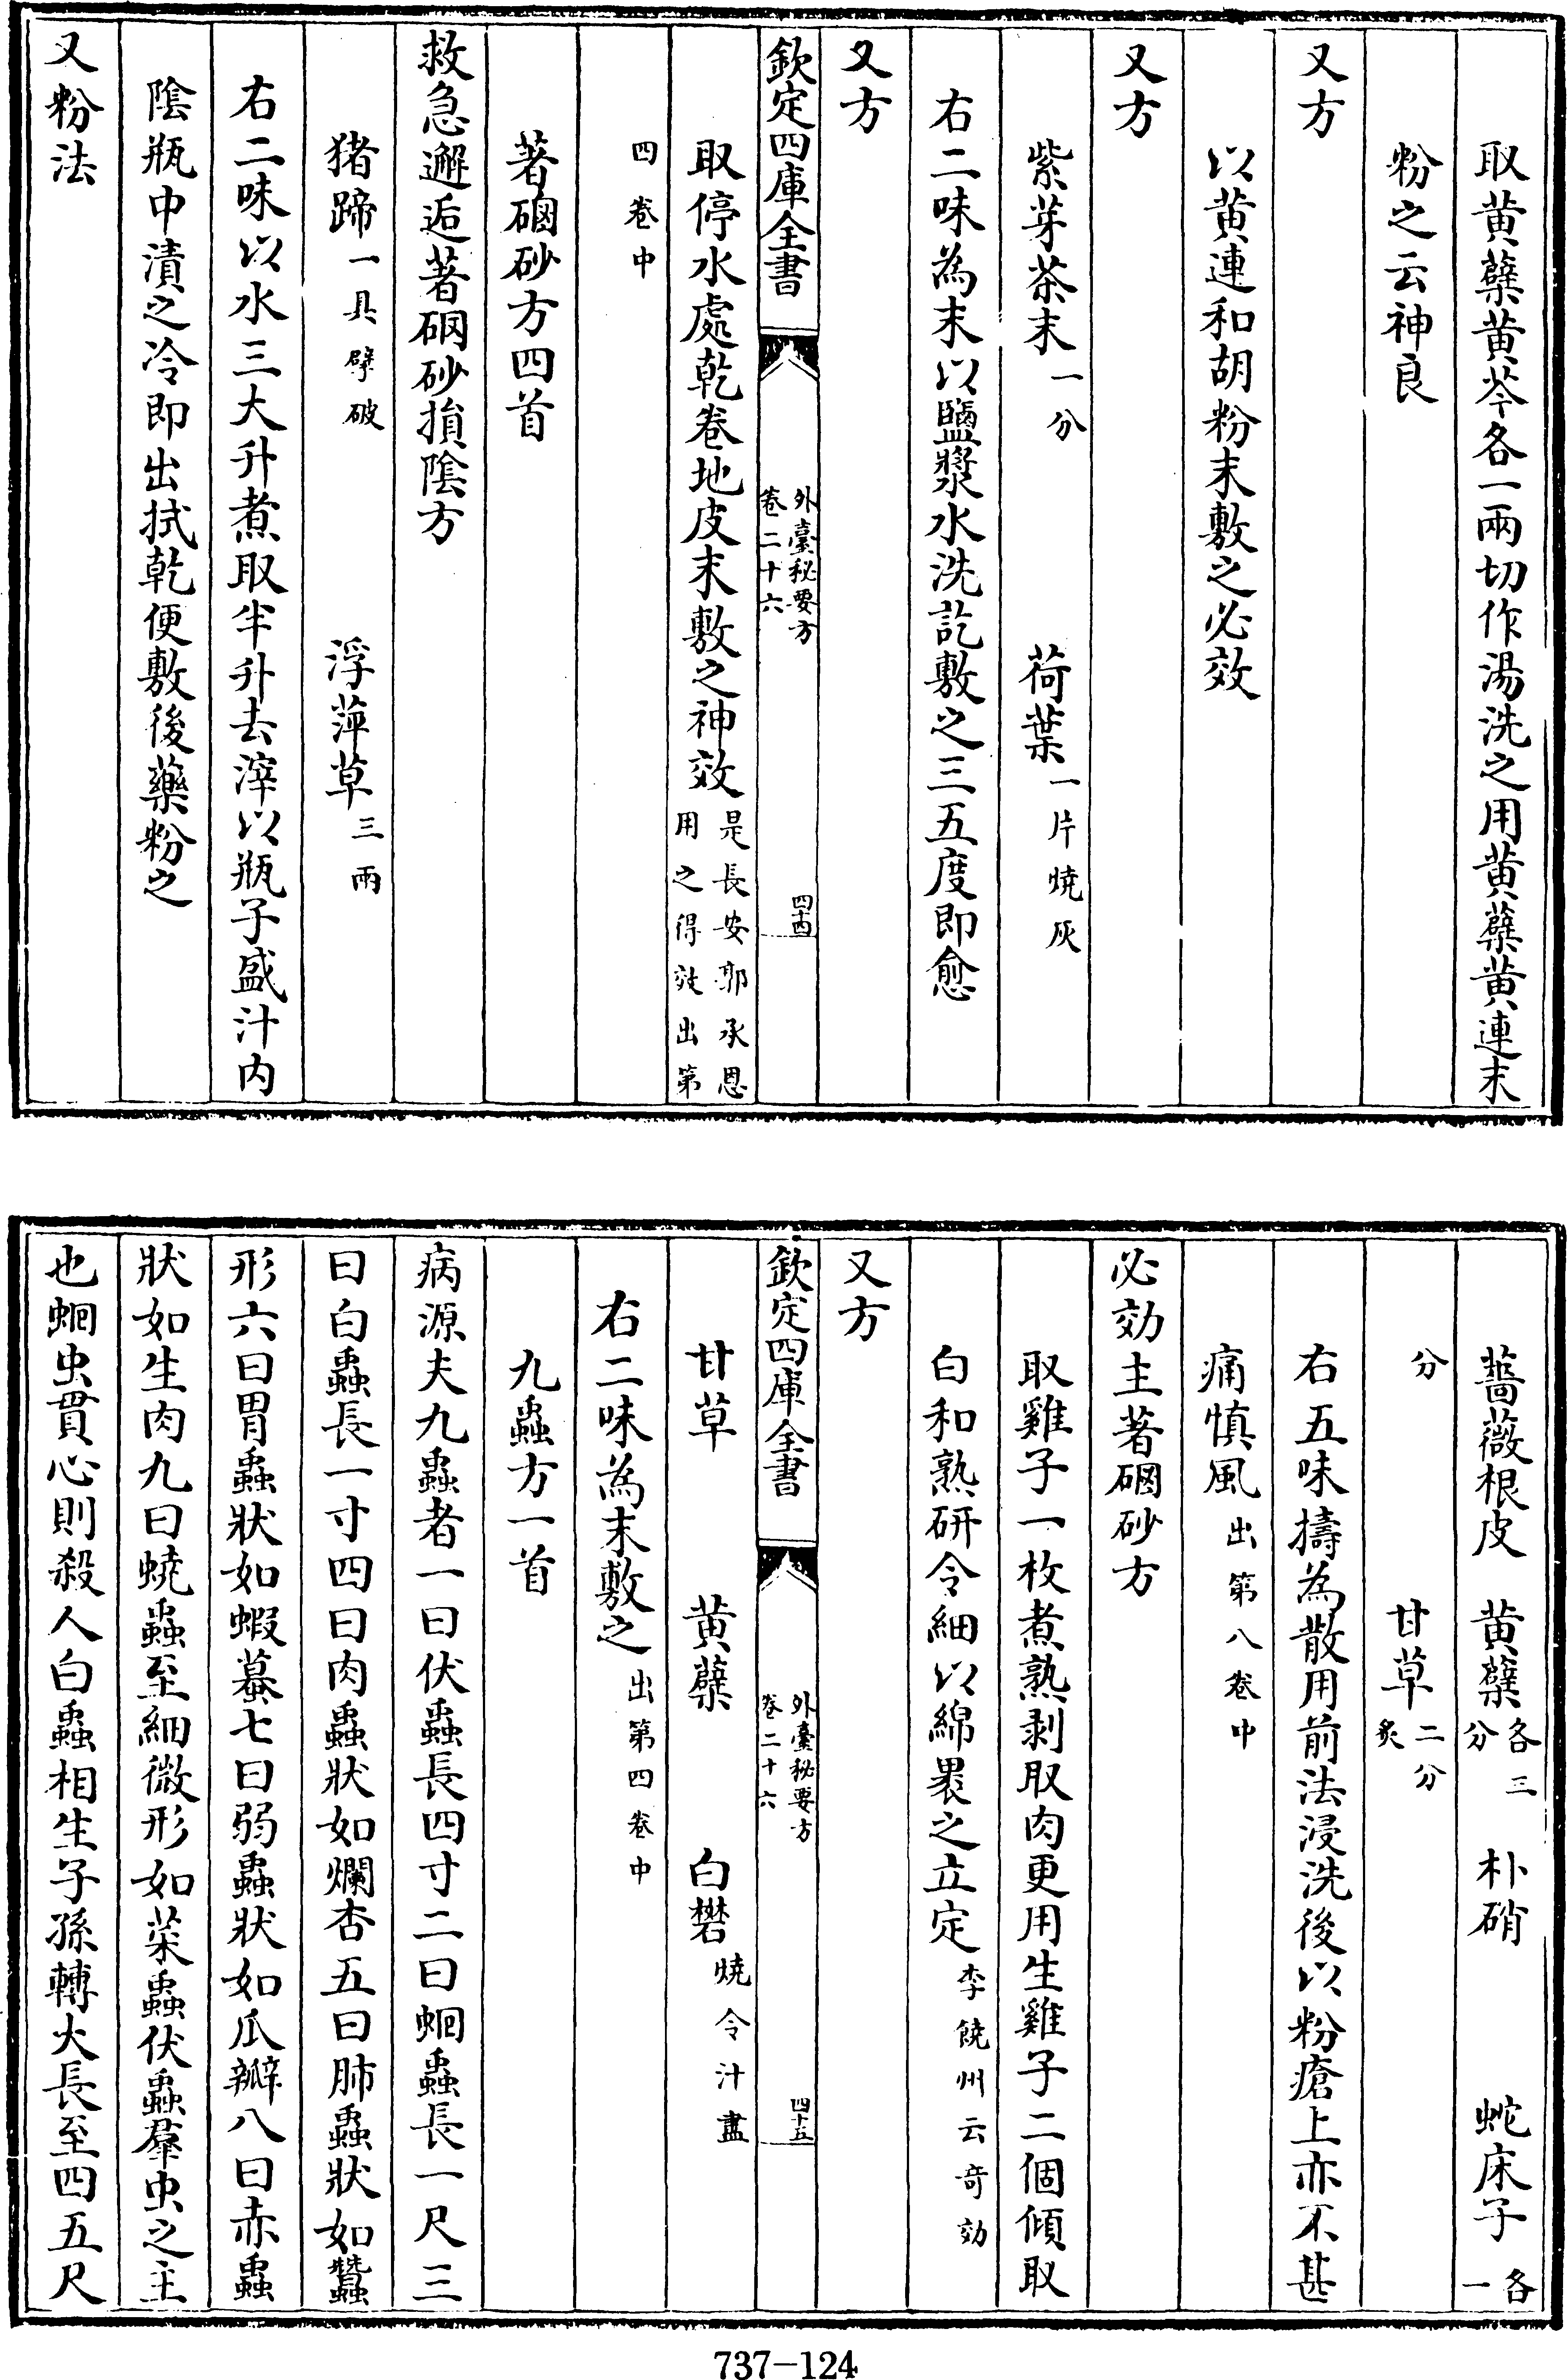 取黄蘗黄芩各一兩切作湯洗之用黄蘗黄連末
粉之云神良
又方
以黄連和胡粉末敷之必效
又方
紫芽茶末一分 荷葉一片燒灰
右二味為末以鹽漿水洗訖敷之三五度即愈
又方
欽定四庫全書
外臺秘要方
卷二十六
四十四
取停水處乾卷地皮末敷之神效是長安郭承恩
用之得效出第
四卷中
著硇砂方四首
救急邂逅著硇砂損陰方
猪蹄一具擘破 浮萍草三兩
右二味以水三大升煮取半升去滓以瓶子盛汁内
陰瓶中漬之冷即出拭乾便敷後藥粉之
又粉法
薔薇根皮 黄蘗各三分 朴硝 蛇床子各一
分 甘草二分炙
右五味擣為散用前法浸洗後以粉瘡上亦不甚
痛慎風出第八卷中
必効主著硇砂方
取雞子一枚煮熟剥取肉更用生雞子二個傾取
白和熟研令細以綿裹之立定李饒州云奇効
又方
欽定四庫全書
外臺秘要方
卷二十六
四十五
甘草 黄蘗 白礬燒令汁盡
右二味為末敷之出第四卷中
九蟲方一首
病源夫九蟲者一曰伏蟲長四寸二曰蛔蟲長一尺三
曰白蟲長一寸四曰肉蟲狀如爛杏五曰肺蟲狀如蠶
形六曰胃蟲狀如蝦蟇七曰弱蟲狀如瓜瓣八曰赤蟲
狀如生肉九曰蟯蟲至細微形如菜蟲伏蟲羣虫之主
也蛔虫貫心則殺人白蟲相生子孫轉大長至四五尺
737-124